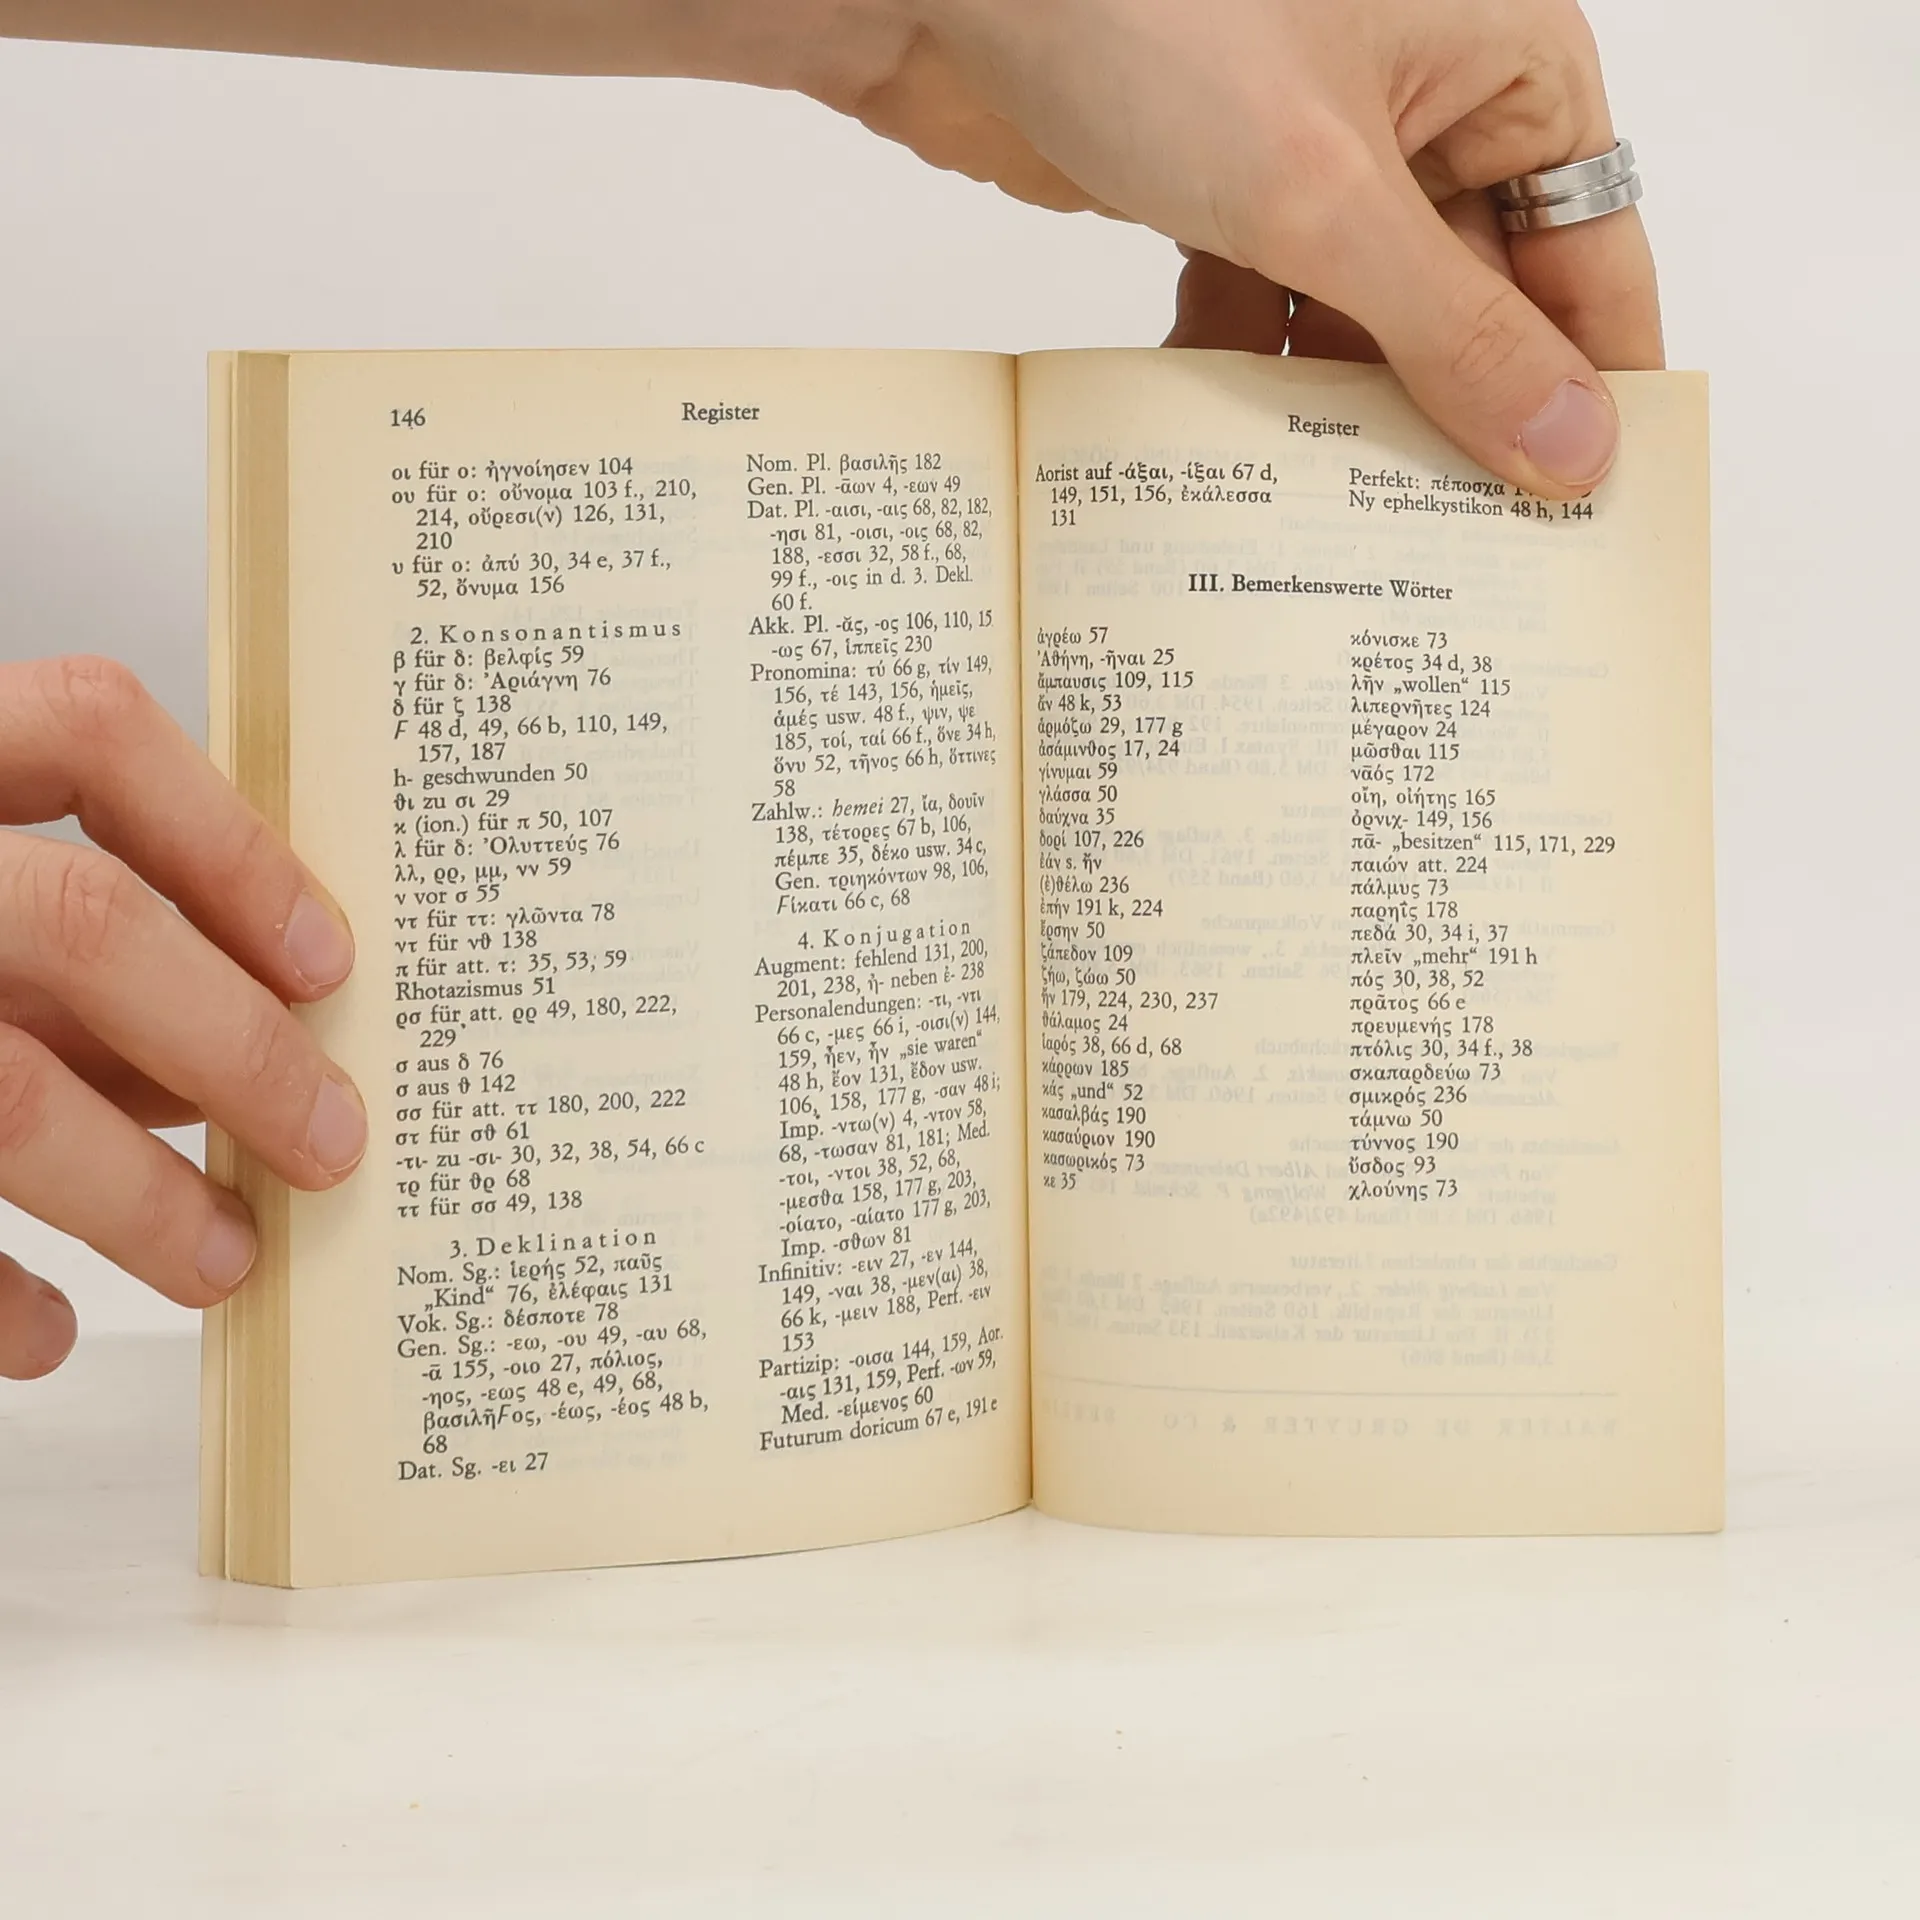 146
Register
οι für ο: ἠγνοίησεν 104
ου für ο: οὔνομα 103 f., 210,
214, οὔρεσι(ν) 126, 131,
210
υ für ο: ἀπύ 30, 34 e, 37 f.,
52, ὄνυμα 156
2. Konsonantismus
β für δ: βελφίς 59
γ für δ: Ἀριάγνη 76
δ für ζ 138
F 48 d, 49, 66 b, 110, 149,
157, 187
h- geschwunden 50
ϑι zu σι 29
κ (ion.) für π 50, 107
λ für δ: Ὀλυττεύς 76
λλ, ρρ, μμ, νν 59
ν vor σ 55
ντ für ττ: γλῶντα 78
ντ für νϑ 138
π für att. τ: 35, 53, 59
Rhotazismus 51
ρσ für att. ρρ 49, 180, 222,
229
σ aus δ 76
σ aus ϑ 142
σσ für att. ττ 180, 200, 222
στ für σϑ 61
-τι- zu -σι- 30, 32, 38, 54, 66 c
τρ für ϑρ 68
ττ für σσ 49, 138
3. Deklination
Nom. Sg.: ἱερής 52, παῦς
„Kind“ 76, ἐλέφαις 131
Vok. Sg.: δέσποτε 78
Gen. Sg.: -εω, -ου 49, -αυ 68,
-ᾱ 155, -οιο 27, πόλιος,
-ηος, -εως 48 e, 49, 68,
βασιλῆFος, -έως, -έος 48 b,
68
Dat. Sg. -ει 27
Nom. Pl. βασιλῆς 182
Gen. Pl. -ᾱων 4, -εων 49
Dat. Pl. -αισι, -αις 68, 82, 182,
-ησι 81, -οισι, -οις 68, 82,
188, -εσσι 32, 58 f., 68,
99 f., -οις in d. 3. Dekl.
60 f.
Akk. Pl. -ᾰς, -ος 106, 110, 15
-ως 67, ἱππεῖς 230
Pronomina: τύ 66 g, τίν 149,
156, τέ 143, 156, ἡμεῖς,
ἁμές usw. 48 f., ψιν, ψε
185, τοί, ταί 66 f., ὅνε 34 h,
ὄνυ 52, τῆνος 66 h, ὄττινες
58
Zahlw.: hemei 27, ἴα, δουῖν
138, τέτορες 67 b, 106,
πέμπε 35, δέκο usw. 34 c,
Gen. τριηκόντων 98, 106,
Fίκατι 66 c, 68
4. Konjugation
Augment: fehlend 131, 200,
201, 238, ἠ- neben ἐ- 238
Personalendungen: -τι, -ντι
66 c, -μες 66 i, -οισι(ν) 144,
159, ἦεν, ἦν „sie waren“
48 h, ἔον 131, ἔδον usw.
106, 158, 177 g, -σαν 48 i;
Imp. -ντω(ν) 4, -ντον 58,
68, -τωσαν 81, 181; Med.
-τοι, -ντοι 38, 52, 68,
-μεσϑα 158, 177 g, 203,
-οίατο, -αίατο 177 g, 203,
Imp. -σϑων 81
Infinitiv: -ειν 27, -εν 144,
149, -ναι 38, -μεν(αι) 38,
66 k, -μειν 188, Perf. -ειν
153
Partizip: -οισα 144, 159, Aor.
-αις 131, 159, Perf. -ων 59,
Med. -είμενος 60
Futurum doricum 67 e, 191 e
Register
Aorist auf -άξαι, -ίξαι 67 d,
149, 151, 156, ἐκάλεσσα
131
Perfekt: πέποσχα
Ny ephelkystikon 48 h, 144
III. Bemerkenswerte Wörter
ἀγρέω 57
Ἀϑήνη, -ῆναι 25
ἄμπαυσις 109, 115
ἄν 48 k, 53
ἁρμόζω 29, 177 g
ἀσάμινϑος 17, 24
γίνυμαι 59
γλάσσα 50
δαύχνα 35
δορί 107, 226
ἐάν s. ἤν
(ἐ)ϑέλω 236
ἐπήν 191 k, 224
ἔρσην 50
ζάπεδον 109
ζήω, ζώω 50
ἤν 179, 224, 230, 237
ϑάλαμος 24
ἱαρός 38, 66 d, 68
κάρρων 185
κάς „und“ 52
κασαλβάς 190
κασαύριον 190
κασωρικός 73
κε 35
κόνισκε 73
κρέτος 34 d, 38
λῆν „wollen“ 115
λιπερνῆτες 124
μέγαρον 24
μῶσϑαι 115
νᾱός 172
οἴη, οἰήτης 165
ὄρνιχ- 149, 156
πᾱ- „besitzen“ 115, 171, 229
παιών att. 224
πάλμυς 73
παρηΐς 178
πεδά 30, 34 i, 37
πλεῖν „mehr“ 191 h
πός 30, 38, 52
πρᾶτος 66 e
πρευμενής 178
πτόλις 30, 34 f., 38
σκαπαρδεύω 73
σμικρός 236
τάμνω 50
τύννος 190
ὕσδος 93
χλούνης 73